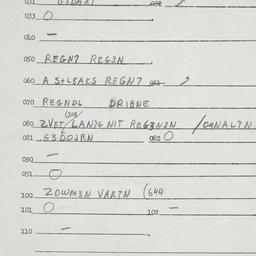 031 G3DAXI 032
033 O
040 —
050 REGN7 REG3N
060 A S+L8AKS REGN7 062
070 REGNDL DRIBNE
080 2VET/LANJG NIT REG3N3N /O4NALTN
081 G3DOJRN 082 O
090 —
091 O
100 ZOWM3N VARTN (644
101 O 102 —
110 —